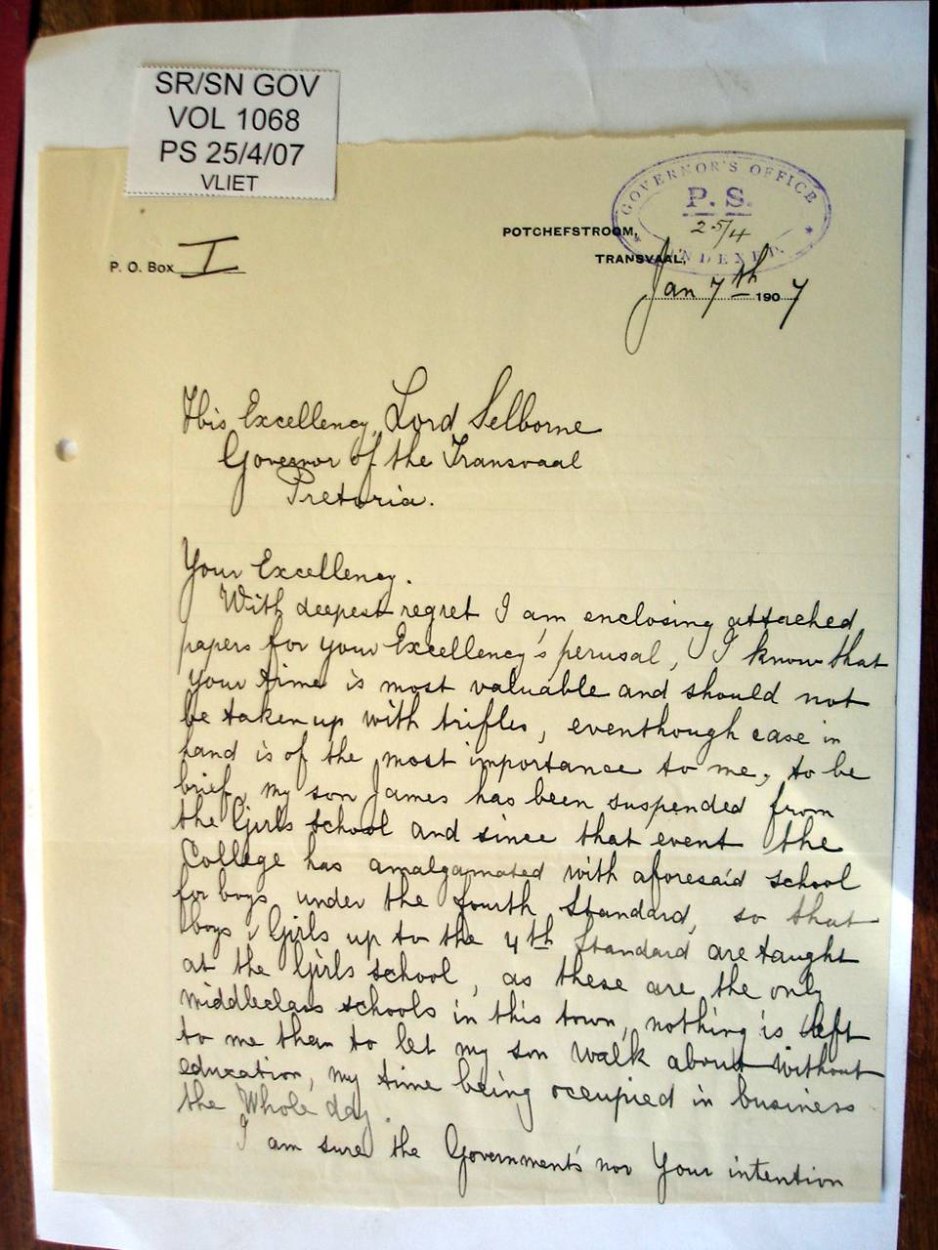 SR/SN GOV
VOL 1068
PS 25/4/07
VLIET
GOVERNOR'S OFFICE
P. S.
25/4
INDEXED
POTCHEFSTROOM,
TRANSVAAL,
P. O. Box I
Jan 7th 1907
His Excellency, Lord Selborne
Governor of the Transvaal
Pretoria.
Your Excellency.
With deepest regret I am enclosing attached
papers for your Excellency's perusal, I know that
your time is most valuable and should not
be taken up with trifles, eventhough case in
hand is of the most importance to me, to be
brief, my son James has been suspended from
the Girls school and since that event the
College has amalgamated with aforesaid school
for boys under the fourth Standard, so that
boys & Girls up to the 4th Standard are taught
at the Girls school, as these are the only
middleclass schools in this town, nothing is left
to me than to let my son walk about without
education, my time being occupied in business
the Whole day.
I am sure the Government's nor Your intention